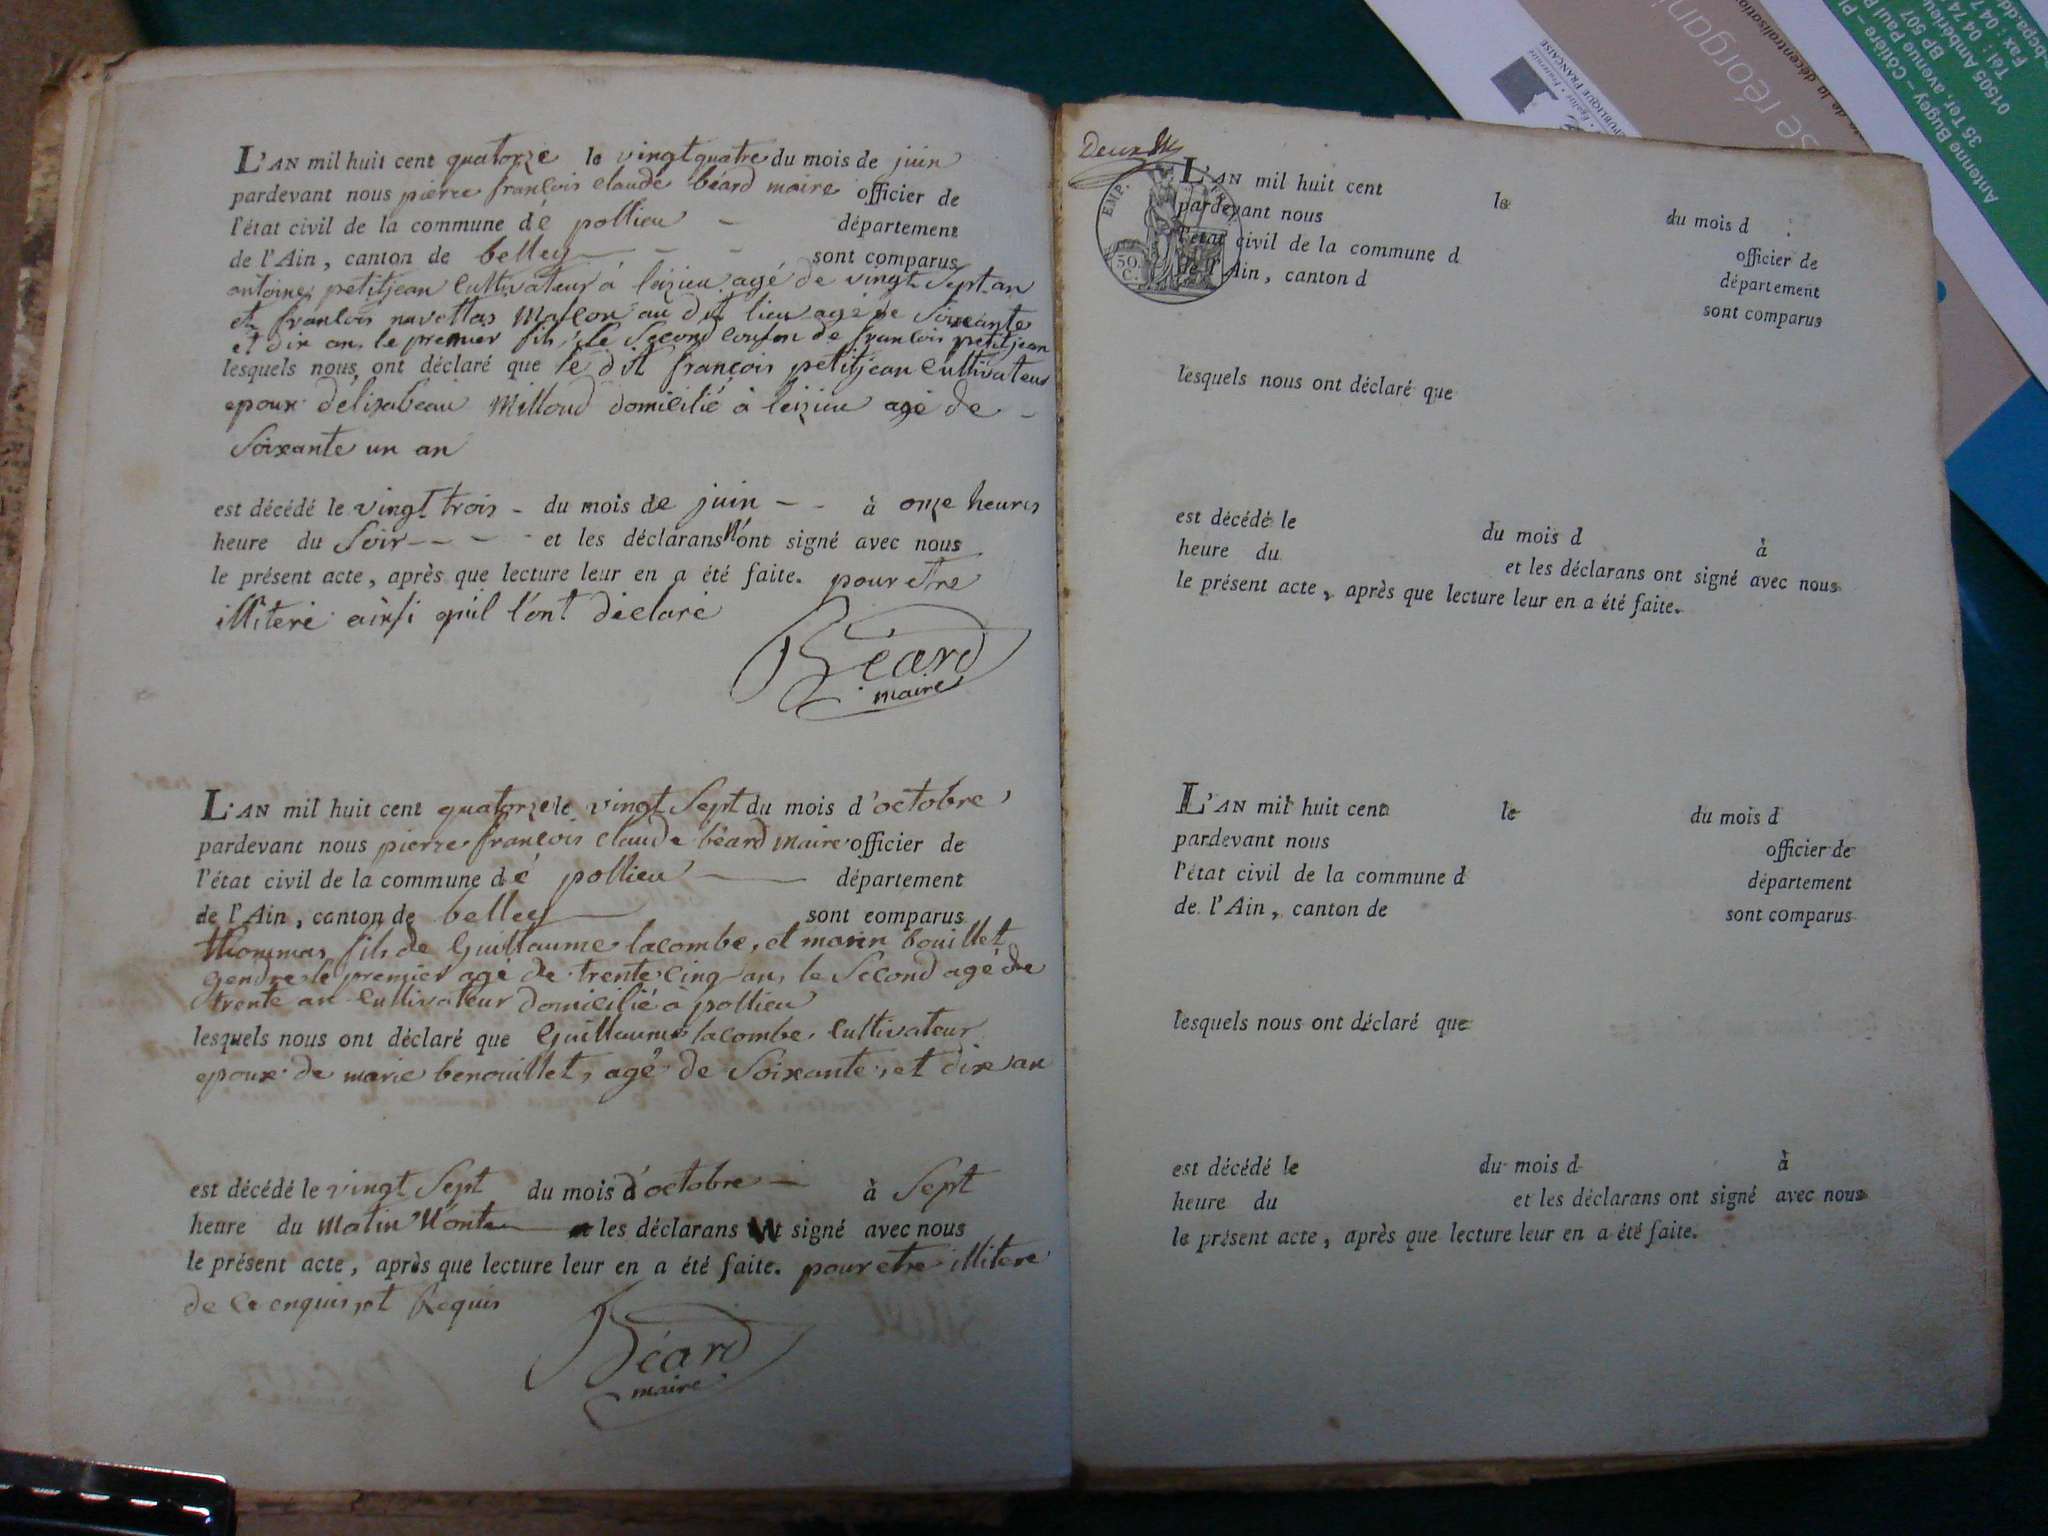 L'AN mil huit cent quatorze le vingt quatre du mois de juin
pardevant nous pierre françois claude béard maire officier de
l'état civil de la commune dé pollieu département
de l'Ain, canton de belley sont comparus
antoine petitjean cultivateur à leizieu agé de vingt sept an
et françois navettas Maçon au dit lieu agé de soixante
et dix an, le premier fils, le Second cousin de françois petitjean
lesquels nous ont déclaré que le dit françois petitjean cultivateur
epoux délisabeau Milloud domicilié à leizieu agé de
Soixante un an
est décédé le vingt trois du mois de juin à onze heures
heure du Soir et les déclarans n'ont signé avec nous
le présent acte, après que lecture leur en a été faite. pour etre
illiteré ainsi qu'il l'ont déclaré
Béard
maire
L'AN mil huit cent quatorze le vingt Sept du mois d'octobre
pardevant nous pierre françois claude béard maire officier de
l'état civil de la commune dé pollieu département
de l'Ain, canton de belley sont comparus
thommas fils de Guillaume lacombe, et marin bouillet
gendre le premier agé de trente cinq an, le Second agé de
trente an cultivateur domicilié à pollieu
lesquels nous ont déclaré que Guillaume lacombe cultivateur
epoux de marie benouillet, agé de Soixante et dix an
est décédé le vingt Sept du mois d'octobre à Sept
heure du Matin N'ont les déclarans signé avec nous
le présent acte, après que lecture leur en a été faite. pour etre illitere
de ce enquis et Requis
Béard
maire
Deux
EMP. FR.
50.
C.
L'AN mil huit cent le du mois d
pardevant nous officier de
l'état civil de la commune d département
de l'Ain, canton d sont comparus
lesquels nous ont déclaré que
est décédé le du mois d à
heure du et les déclarans ont signé avec nous
le présent acte, après que lecture leur en a été faite.
L'AN mil huit cent le du mois d
pardevant nous officier de
l'état civil de la commune d département
de l'Ain, canton de sont comparus
lesquels nous ont déclaré que
est décédé le du mois d à
heure du et les déclarans ont signé avec nous
le présent acte, après que lecture leur en a été faite.
Antenne Bugey – Côtière – Pl
35 Ter, avenue Paul
BP 507
01505 Ambérieu
Tél : 04 74
Fax : 04 7
se réorgani
décentralisation
RÉPUBLIQUE FRANÇAISE